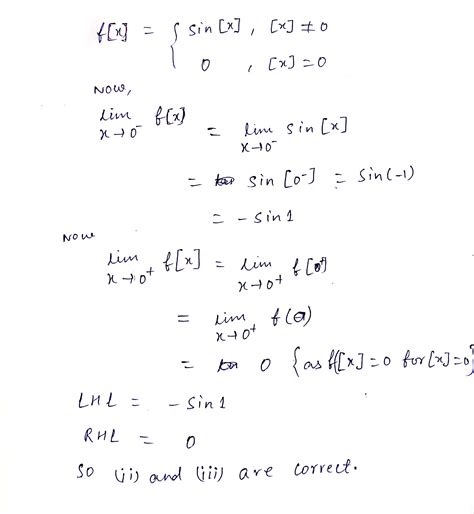 f[x] = { sin[x] , [x] ≠ 0
0 , [x] = 0
Now,
lim x→0⁻ f[x] = lim x→0⁻ sin[x]
= sin [0⁻] = sin(-1)
= - sin 1
Now
lim x→0⁺ f[x] = lim x→0⁺ f[0⁺]
= lim x→0⁺ f(0)
= 0 {as f[x] = 0 for [x] = 0}
LHL = - sin 1
RHL = 0
So (ii) and (iii) are correct.